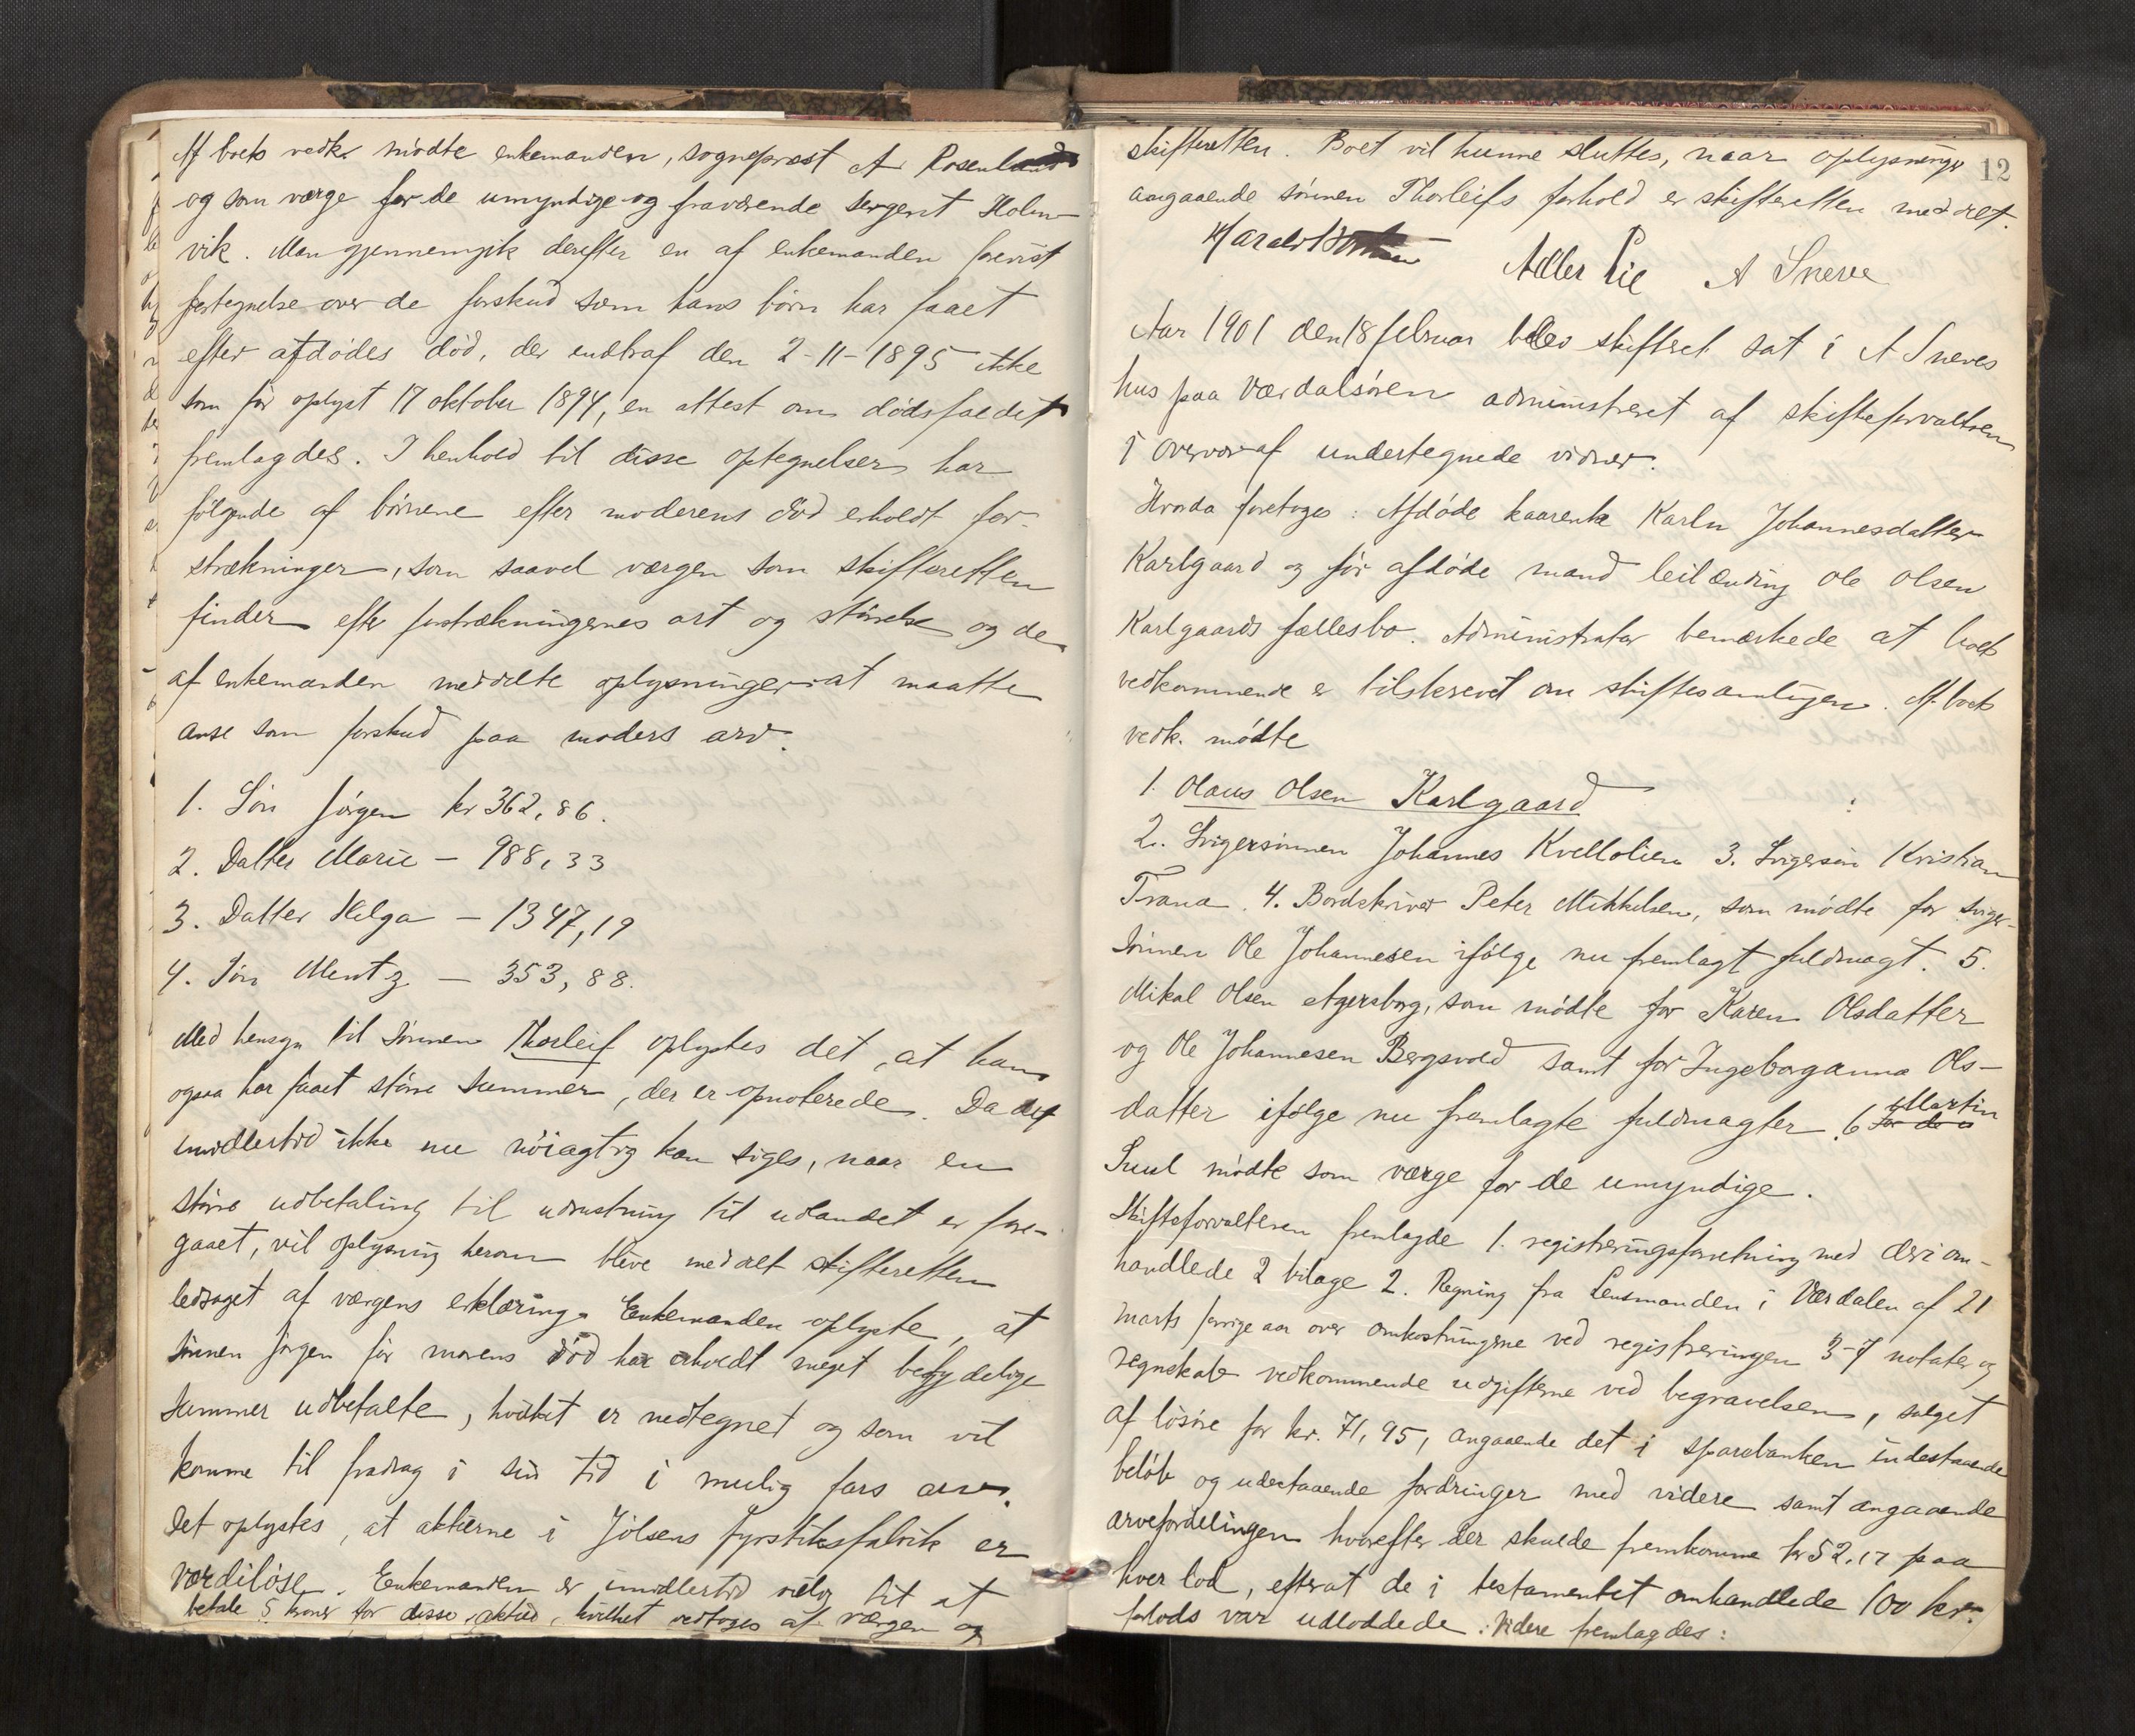 Af boets vedk. mödte enkemanden, sogneprest A Rosenlund
og som værge for de umyndige og fraværende sergent Holm-
vik. Man gjennemgik derefter en af enkemanden forevist
fortegnelse over de forskud som hans börn har faaet
efter afdödes död, der indtraf den 2-11-1895 ikke
som för oplyst 17 oktober 1894, en attest om dödsfaldet
fremlagdes. I henhold til disse optegnelser har
fölgende af börnene efter moderens död erholdt for-
strækninger, som saavel værgen som skifteretten
finder efter forstrækningernes art og störrelse og de
af enkemanden meddelte oplysninger at maatte
anse som forskud paa moders arv.
1. Sön Jörgen kr 362,86.
2. Datter Marie - 988,33
3. Datter Helga - 1347,19
4. Sön Mentz - 353,88.
Med hensyn til sönnen Thorleif oplystes det, at han
ogsaa har faaet större summer, der er opnoterede. Da det
imidlertid ikke nu nöiagtig kan siges, naar en
större udbetaling til udrustning til udlandet er fore-
gaaet, vil oplysning herom blive meddelt skifteretten
ledsaget af værgens erklæring. Enkemanden oplyste, at
sönnen Jörgen för morens död har erholdt meget betydelige
summer udbetalte, hvilket er nedtegnet og som vil
komme til fradrag i sin tid i mulig fars arv.
Det oplystes, at aktierne i Jölsens fyrstiksfabrik er
værdilöse. Enkemanden er imidlertid villig til at
betale 5 kroner for disse aktier, hvilket vedtoges af værgen og
12
skifteretten. Boet vil kunne sluttes, naar oplysninger
angaaende sönnen Thorleifs forhold er skifteretten meddelt.
Harald Atller Lie A Sneve
Aar 1901 den 18 februar blev skifteret sat i A Sneves
hus paa Værdalsören administreret af skifteforvalteren
i overvær af undertegnede vidner.
Hvorda foretoges: Afdöde kaarenke Karln Johannesdatter
Karlgaard og för afdöde mand leilænding Ole Olsen
Karlgaards fællesbo. Administrator bemærkede at boets
vedkommende er tilskrevet om skiftesamlingen. Af boets
vedk. mödte
1. Olaus Olsen Karlgaard
2. Svigersönnen Johannes Kvellolien 3. Svigersön Kristian
Trana. 4. Bordskriver Peter Mikkelsen, som mödte for sviger-
sönnen Ole Johannesen ifölge nu fremlagt fuldmagt. 5.
Mikal Olsen Agersborg, som mödte for Karen Olsdatter
og Ole Johannesen Bergsvold samt for Ingeborganna Ols-
datter ifölge nu fremlagte fuldmagter. 6 Martin
Suul mödte som værge for de umyndige.
Skifteforvalteren fremlagde 1. registreringsforretning med deri om-
handlede 2 bilage 2. Regning fra Lensmanden i Værdalen af 21
marts forrige aar over omkostningerne ved registreringen 3-7 notater og
regnskab vedkommende udgifterne ved begravelsen, salget
af lösöre for kr. 71,95, angaaende det i sparebanken indestaaende
belöb og udestaaende fordringer med videre samt angaaende
arvefordelingen hvorefter der skulde fremkomme kr 52.17 paa
hver lod, efterat de i testamentet omhandlede 100 kr.
forlods var udloddede. Videre fremlagdes: